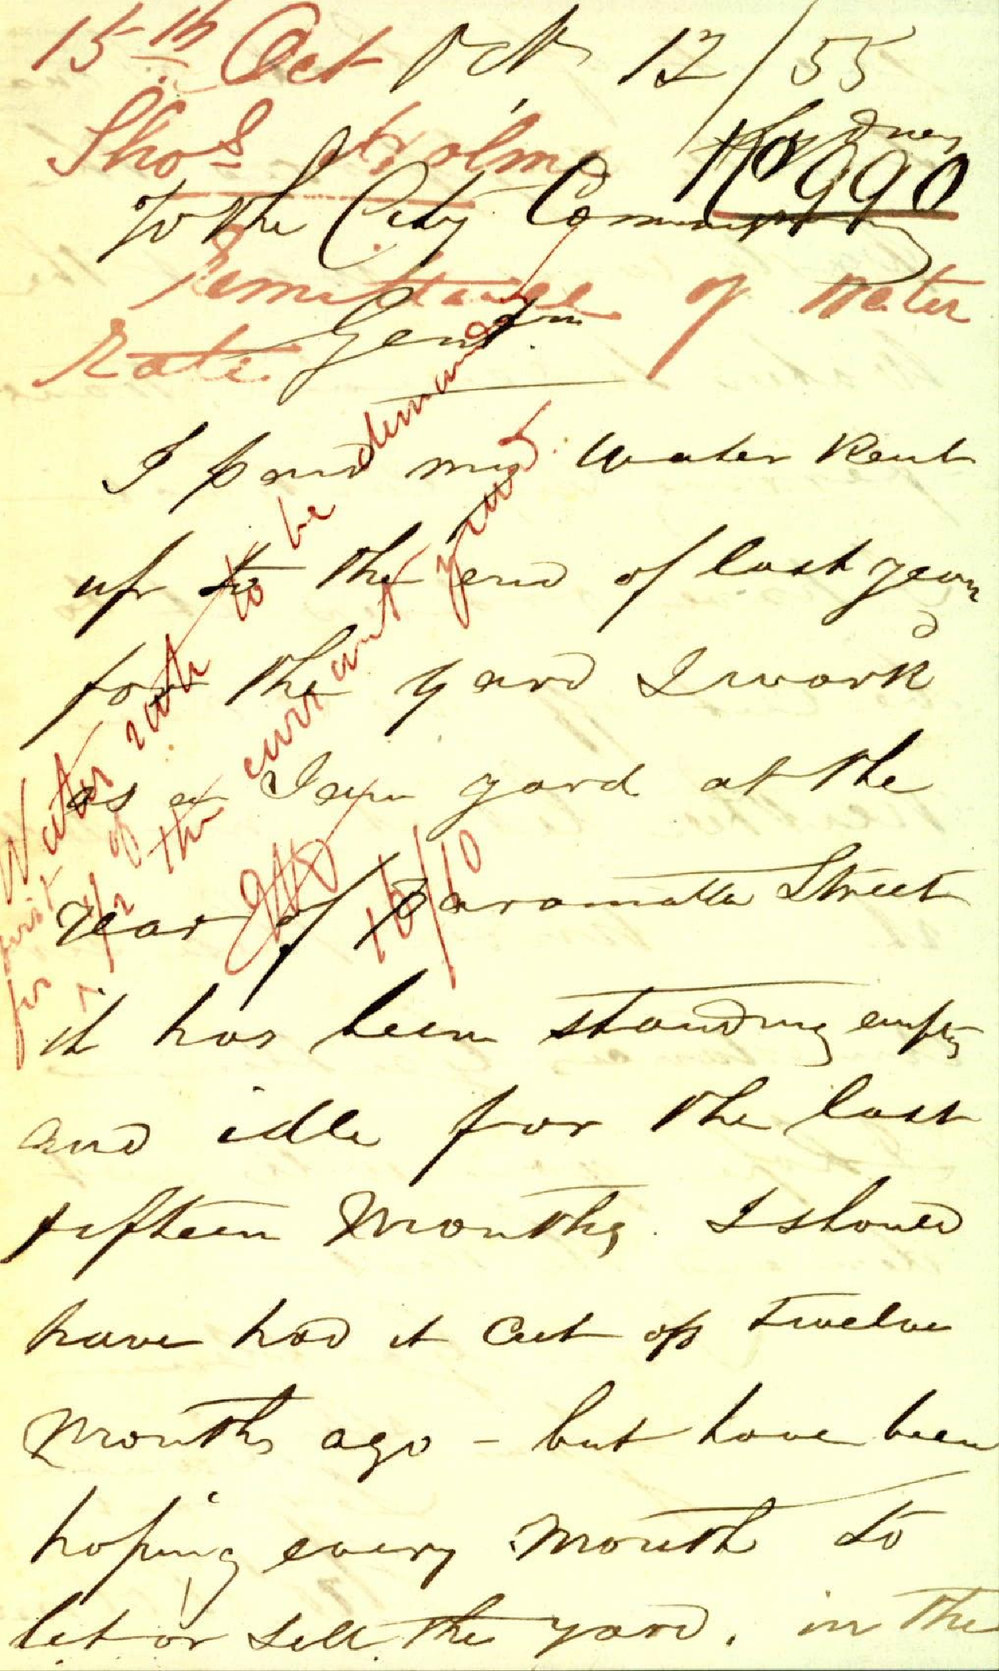 15th Oct
Oct 12/55
Thos Holm
Sydney
No 990
To the City Commissioners
Remittance of Water
Rate.
Gentm
I paid my Water Rent
up to the end of last year
for the yard I work'd
as a Team yard at the
rear of Paramatta Street
it has been standing empty
and idle for the last
fifteen Months. I should
have had it cut off twelve
Months ago - but have been
hoping every Month to
let or sell the yard, in the
Water rate to be demanded
for 1/2 of the current year.
16/10